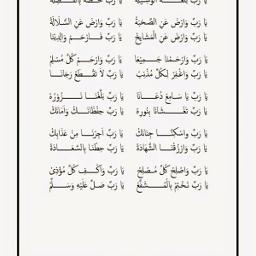 يَا رَبِّ بَلِّغْهُ الْوَسِيلَةْ يَا رَبِّ خُصَّهْ بِالْفَضِيلَةْ
يَا رَبِّ وَارْضَ عَنِ الصَّحَابَةْ يَا رَبِّ وَارْضَ عَنِ السُّلَالَةْ
يَا رَبِّ وَارْضَ عَنِ الْمَشَايِخْ يَا رَبِّ فَارْحَمْ وَالِدِينَا
يَا رَبِّ وَارْحَمْنَا جَمِيعًا يَا رَبِّ وَارْحَمْ كُلَّ مُسْلِمْ
يَا رَبِّ وَاغْفِرْ لِكُلِّ مُذْنِبْ يَا رَبِّ لَا تَقْطَعْ رَجَانَا
يَا رَبِّ يَا سَامِعْ دُعَانَا يَا رَبِّ بَلِّغْنَا نَزُورُهْ
يَا رَبِّ تَغْشَانَا بِنُورِهْ يَا رَبِّ حِفْظَانَكْ وَأَمَانَكْ
يَا رَبِّ وَاسْكِنَّا جِنَانَكْ يَا رَبِّ أَجِرْنَا مِنْ عَذَابِكْ
يَا رَبِّ وَارْزُقْنَا الشَّهَادَةْ يَا رَبِّ حِطْنَا بِالسَّعَادَةْ
يَا رَبِّ وَاصْلِحْ كُلَّ مُصْلِحْ يَا رَبِّ وَاكْفِ كُلَّ مُؤْذِي
يَا رَبِّ نَخْتِمْ بِالْمُشَفَّعْ يَا رَبِّ صَلِّ عَلَيْهِ وَسَلِّمْ